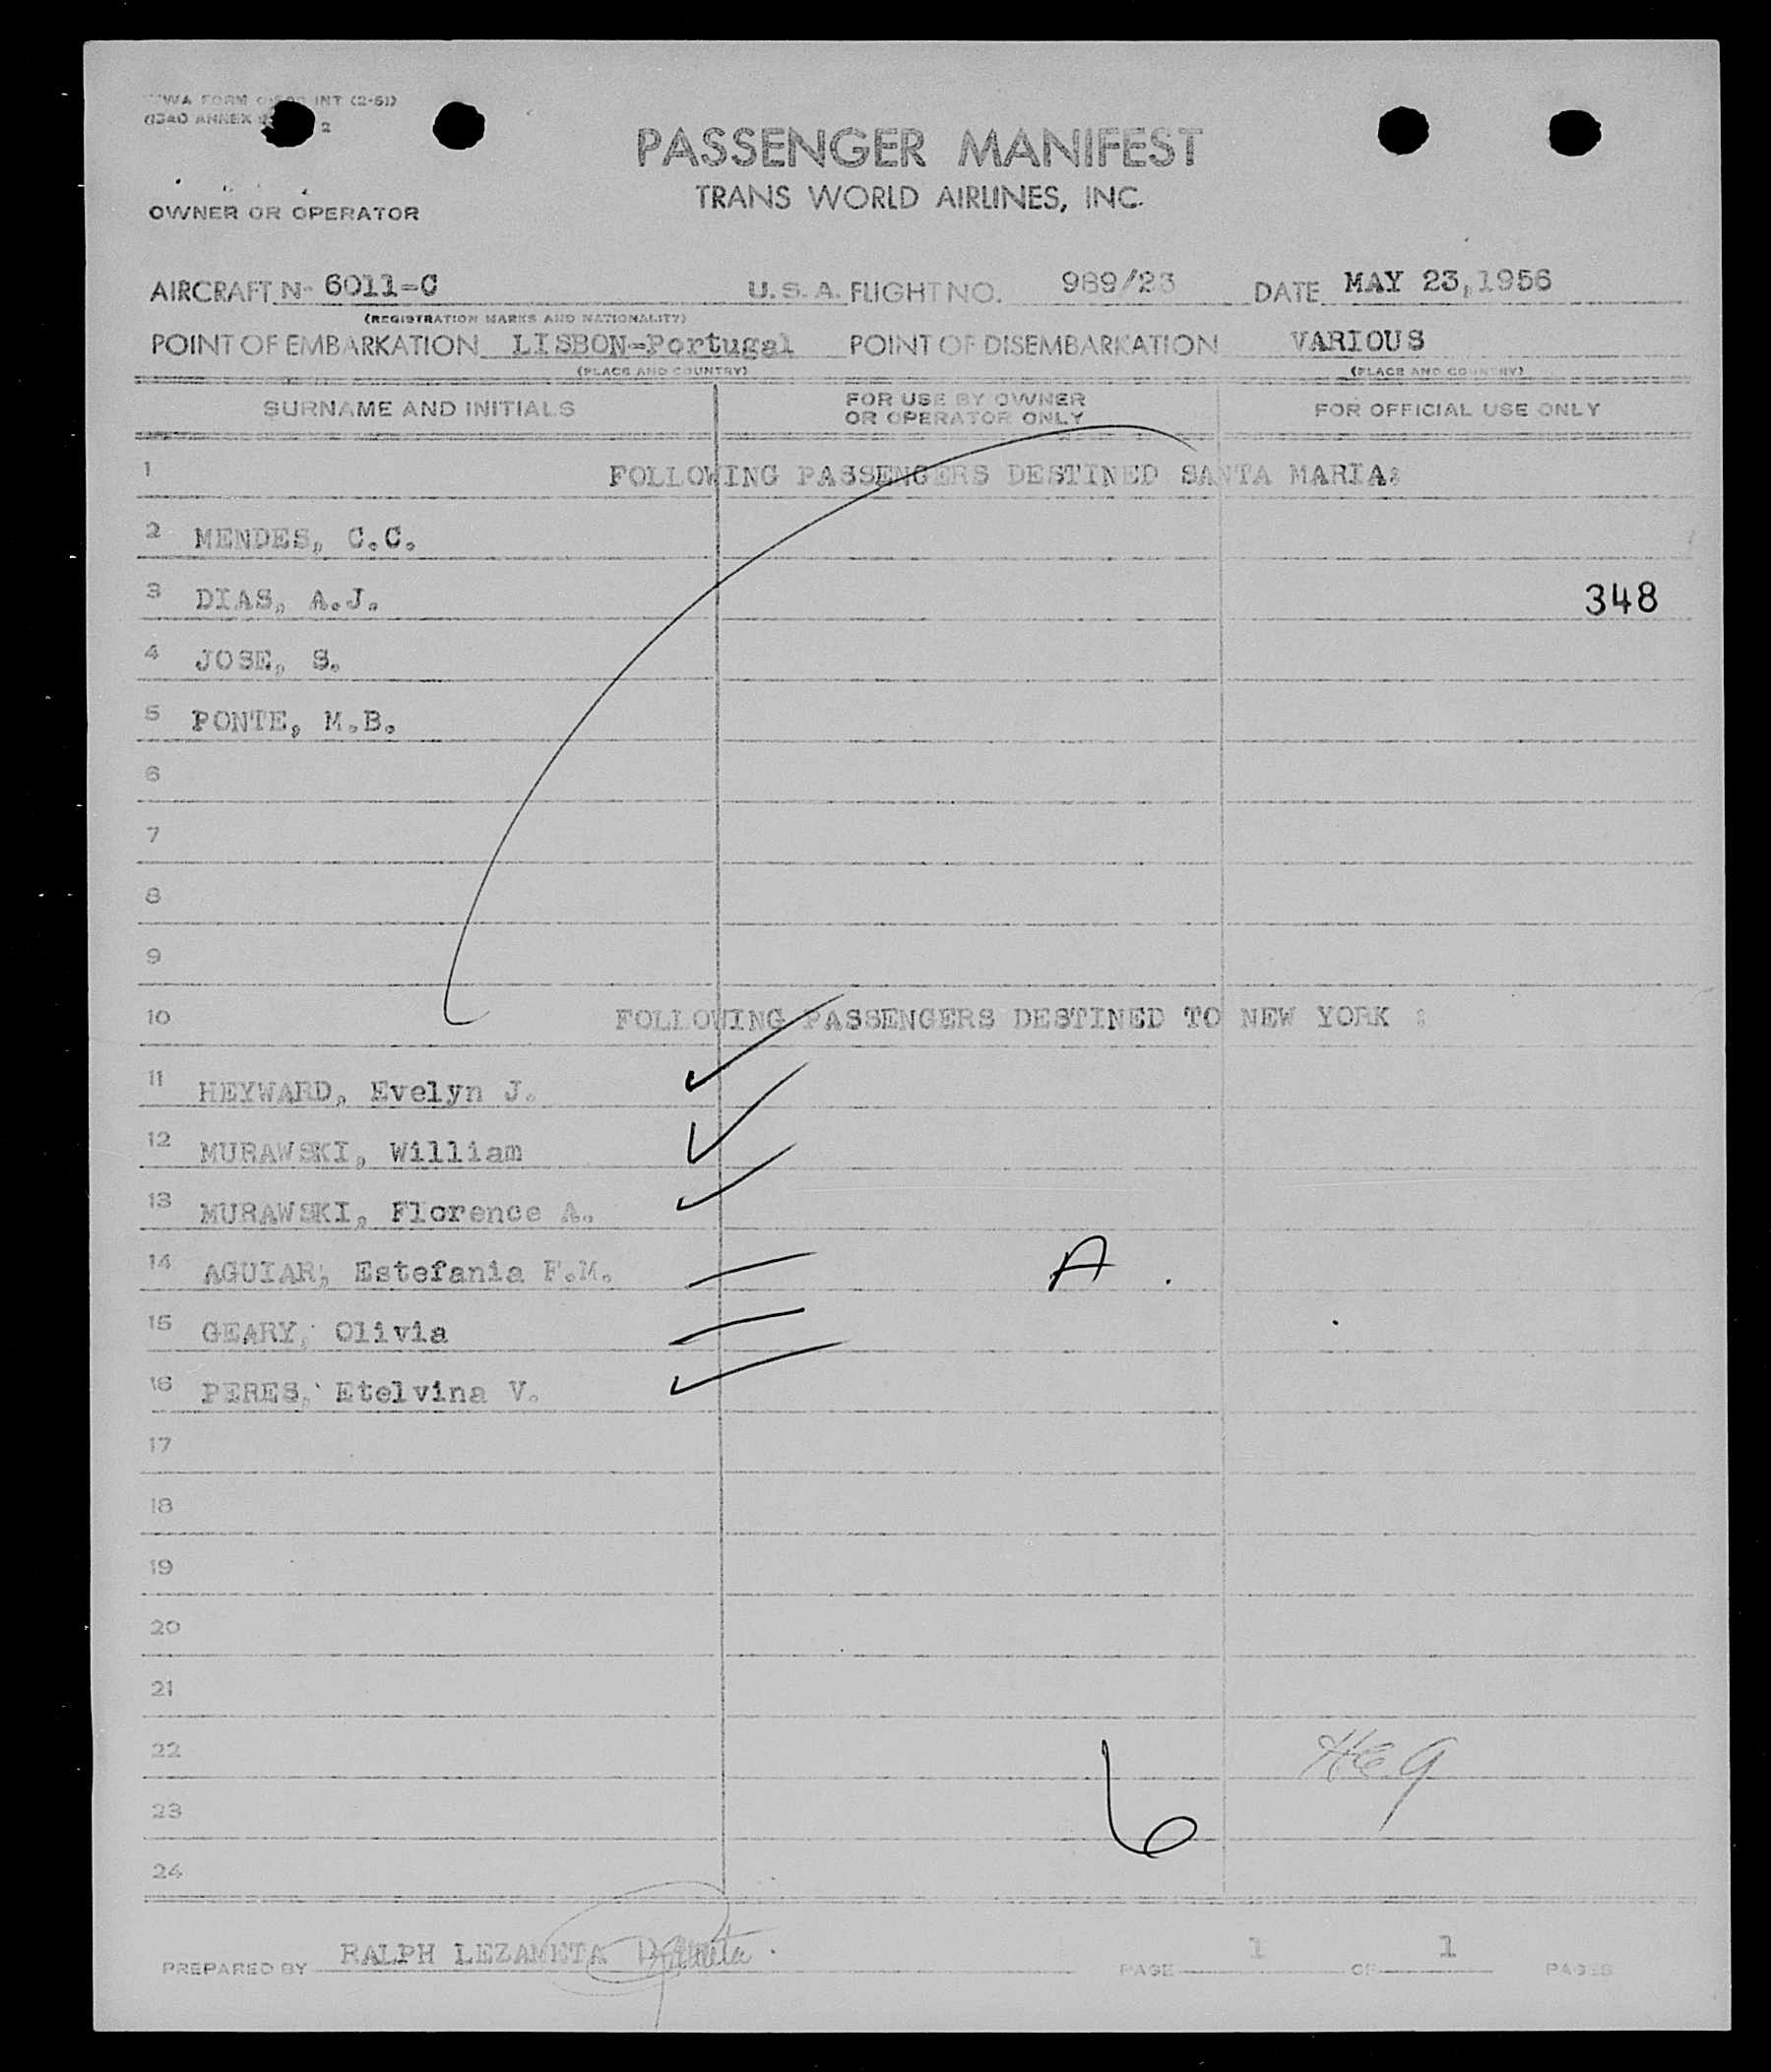 TWA FORM INT (2-51)
ICAO ANNEX 2
PASSENGER MANIFEST
TRANS WORLD AIRLINES, INC.
OWNER OR OPERATOR
AIRCRAFT N- 6011-C U.S.A. FLIGHT NO. 989/23 DATE MAY 23,1956
(REGISTRATION MARKS AND NATIONALITY)
POINT OF EMBARKATION LISBON-Portugal POINT OF DISEMBARKATION VARIOUS
(PLACE AND COUNTRY) (PLACE AND COUNTRY)
SURNAME AND INITIALS FOR USE BY OWNER OR OPERATOR ONLY FOR OFFICIAL USE ONLY
1 FOLLOWING PASSENGERS DESTINED SANTA MARIA:
2 MENDES, C.C.
3 DIAS, A.J. 348
4 JOSE, S.
5 PONTE, M.B.
6
7
8
9
10 FOLLOWING PASSENGERS DESTINED TO NEW YORK :
11 HEYWARD, Evelyn J.
12 MURAWSKI, William
13 MURAWSKI, Florence A.
14 AGUIAR, Estefania F.M. A
15 GEARY, Olivia
16 PERES, Etelvina V.
17
18
19
20
21
22
23 6
24
PREPARED BY RALPH LEZAMETA PAGE 1 OF 1 PAGES